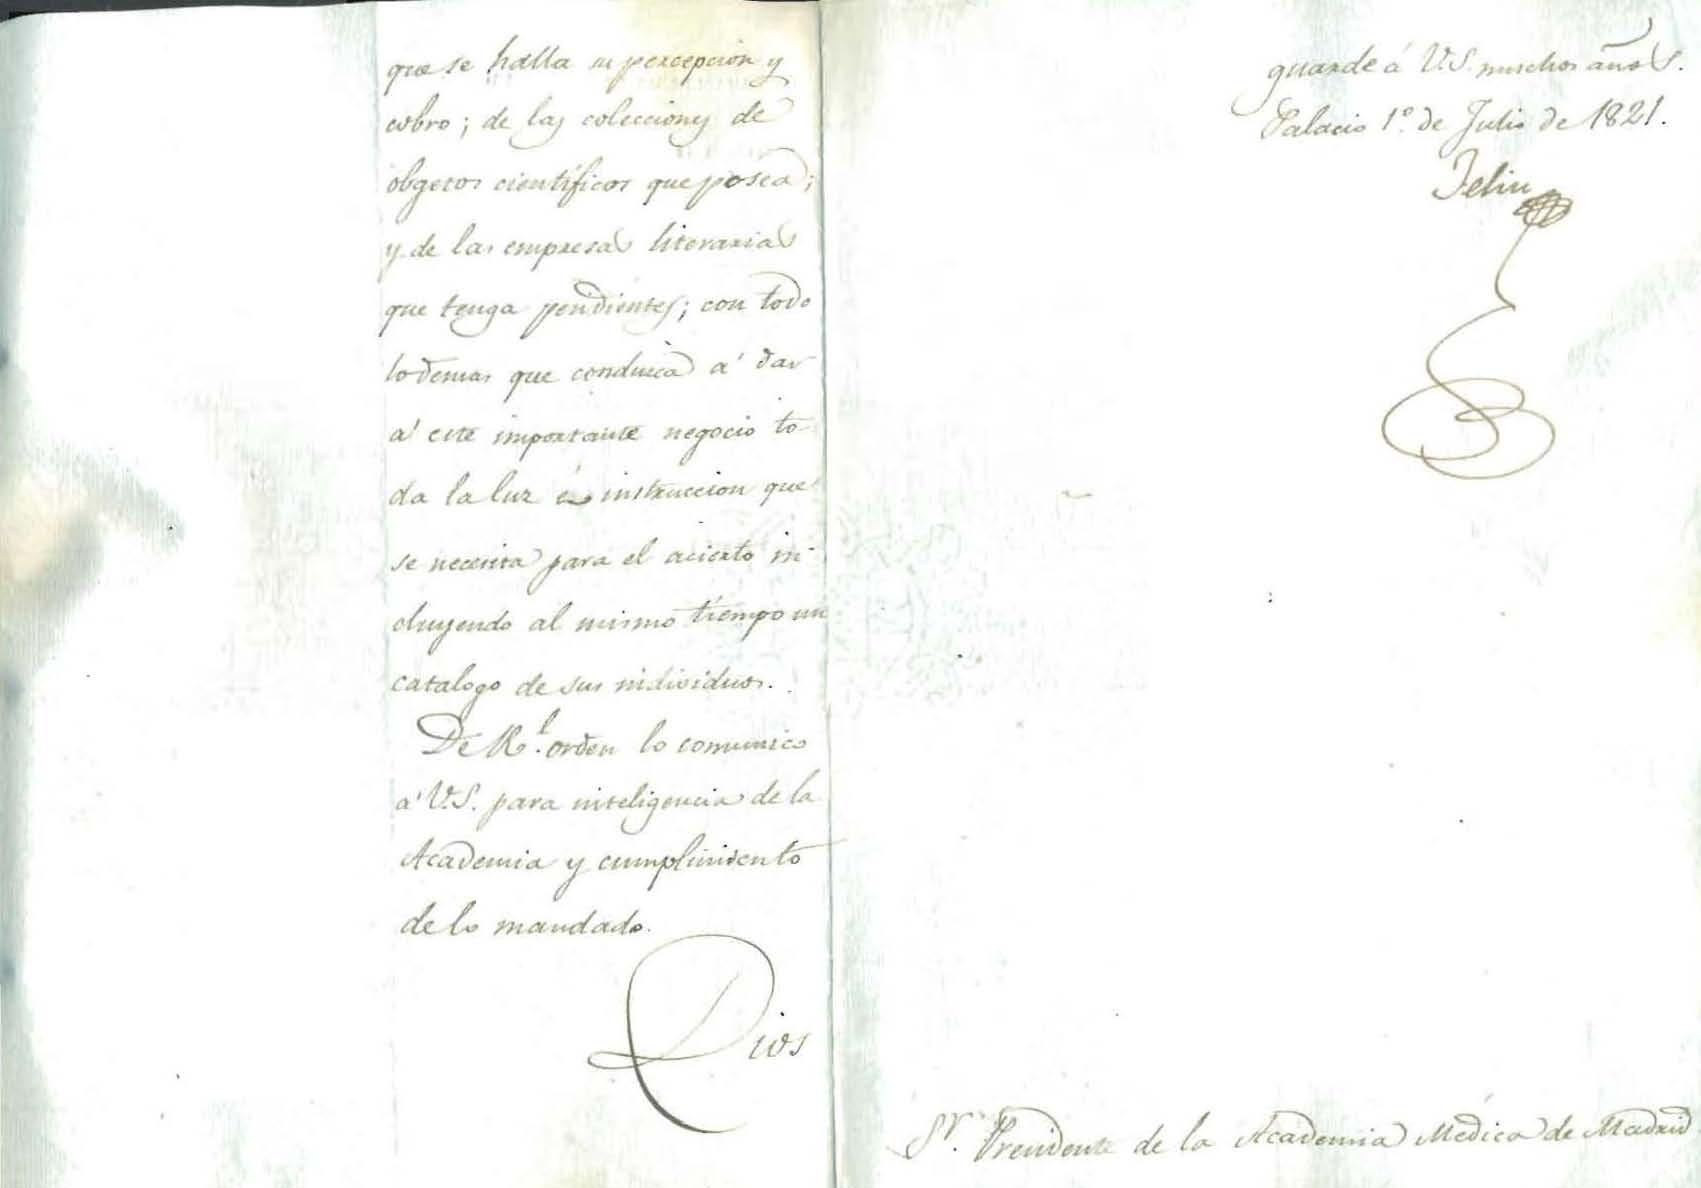 que se halla su percepcion y
cobro; de las colecciones de
obgetos cientificos que posea;
y de las empresas literarias
que tenga pendientes; con todo
lo demas que conduzca á dar
á este importante negocio to-
da la luz é instruccion que
se necesita para el acierto in-
cluyendo al mismo tiempo un
catalogo de sus individuos.
De Rl. orden lo comunico
á V.S. para inteligencia de la
Academia y cumplimiento
de lo mandado.
Dios
guarde á V.S. muchos años.
Palacio 1º. de Julio de 1821.
Feliu
Sr. Presidente de la Academia Médica de Madrid